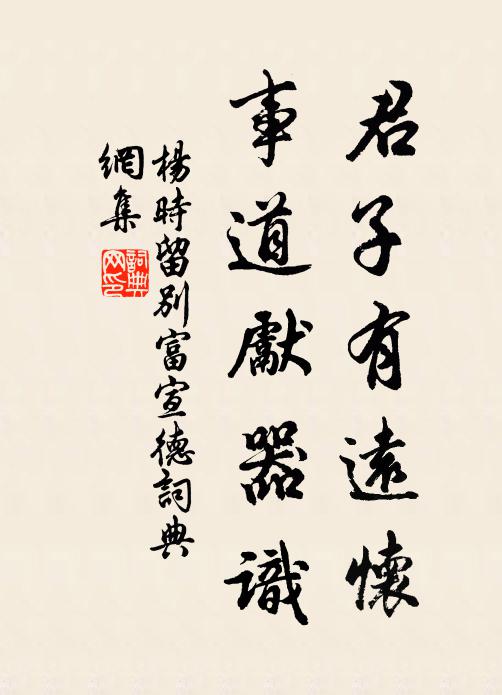 君子有遠懷
事道獻器識
楊時留別富宣德詞典
網集
詞典网印